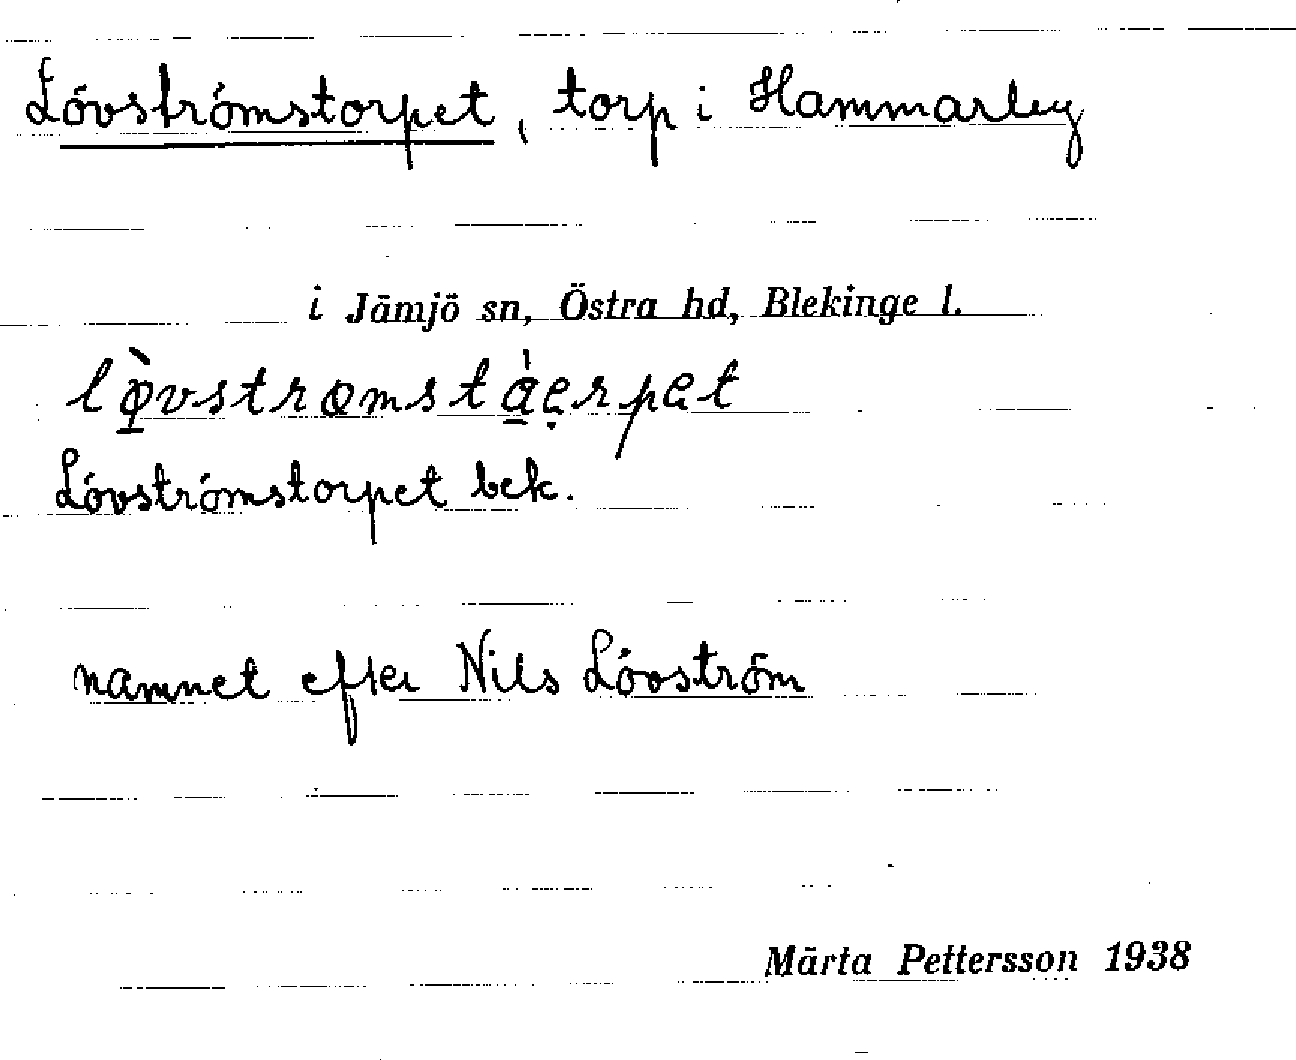 Lövströmstorpet, torp i Hammarley
i Jämjö sn, Östra hd, Blekinge l.
Lövströmstorpet bek.
namnet efter Nils Lövström
Märta Pettersson 1938